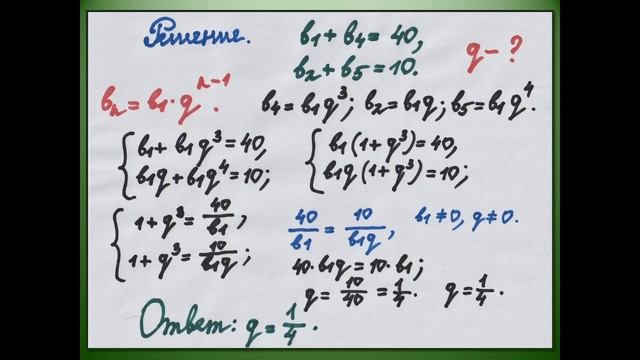 Решение. b₁ + b₄ = 40,
b₂ + b₅ = 10. q – ?
bₙ = b₁ · qⁿ⁻¹. b₄ = b₁q³; b₂ = b₁q; b₅ = b₁q⁴.
{ b₁ + b₁q³ = 40, { b₁(1 + q³) = 40,
b₁q + b₁q⁴ = 10; b₁q(1 + q³) = 10;
{ 1 + q³ = 40/b₁, 40/b₁ = 10/b₁q, b₁ ≠ 0, q ≠ 0.
1 + q³ = 10/b₁q; 40 · b₁q = 10 · b₁;
q = 10/40 = 1/4. q = 1/4.
Ответ: q = 1/4.